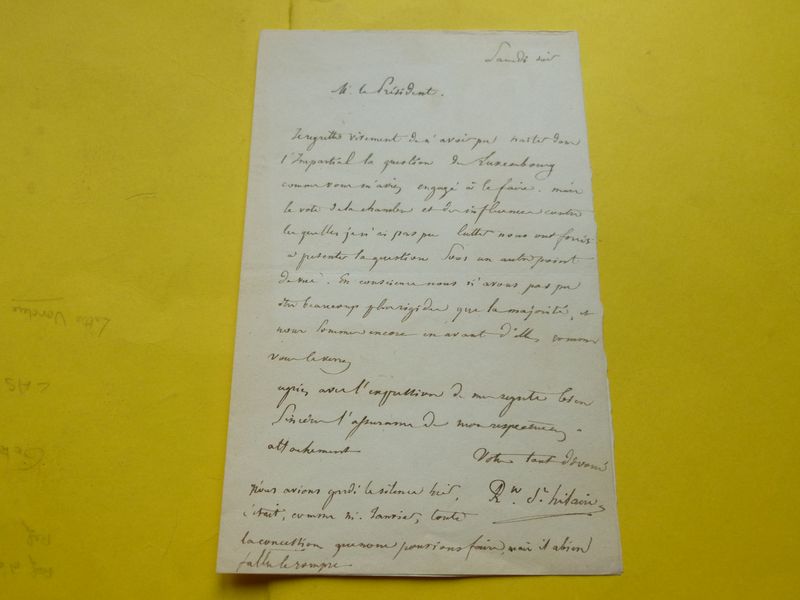 Samedi soir
Mr. le Président.
Je regrette vivement de n'avoir pu traiter dans
l'Impartial la question du Luxembourg
comme vous m'aviez engagé à le faire. mais
le vote de la chambre et des influences contre
lesquelles je n'ai pas pu lutter nous ont forcés
à présenter la question sous un autre point
de vue. En conscience nous n'avons pas pu
être beaucoup plus rigides que la majorité, et
nous sommes encore en avant d'elle, comme
vous le verrez
agréez avec l'expression de mes regrets bien
sincères l'assurance de mon respectueux
attachement
Votre tout dévoué
St. hilaire
Nous avions gardé le silence hier,
c'était, comme M. Janvier, toute
la concession que nous pouvions faire, mais il a bien
fallu le rompre.
Lettre Vendue
LAS